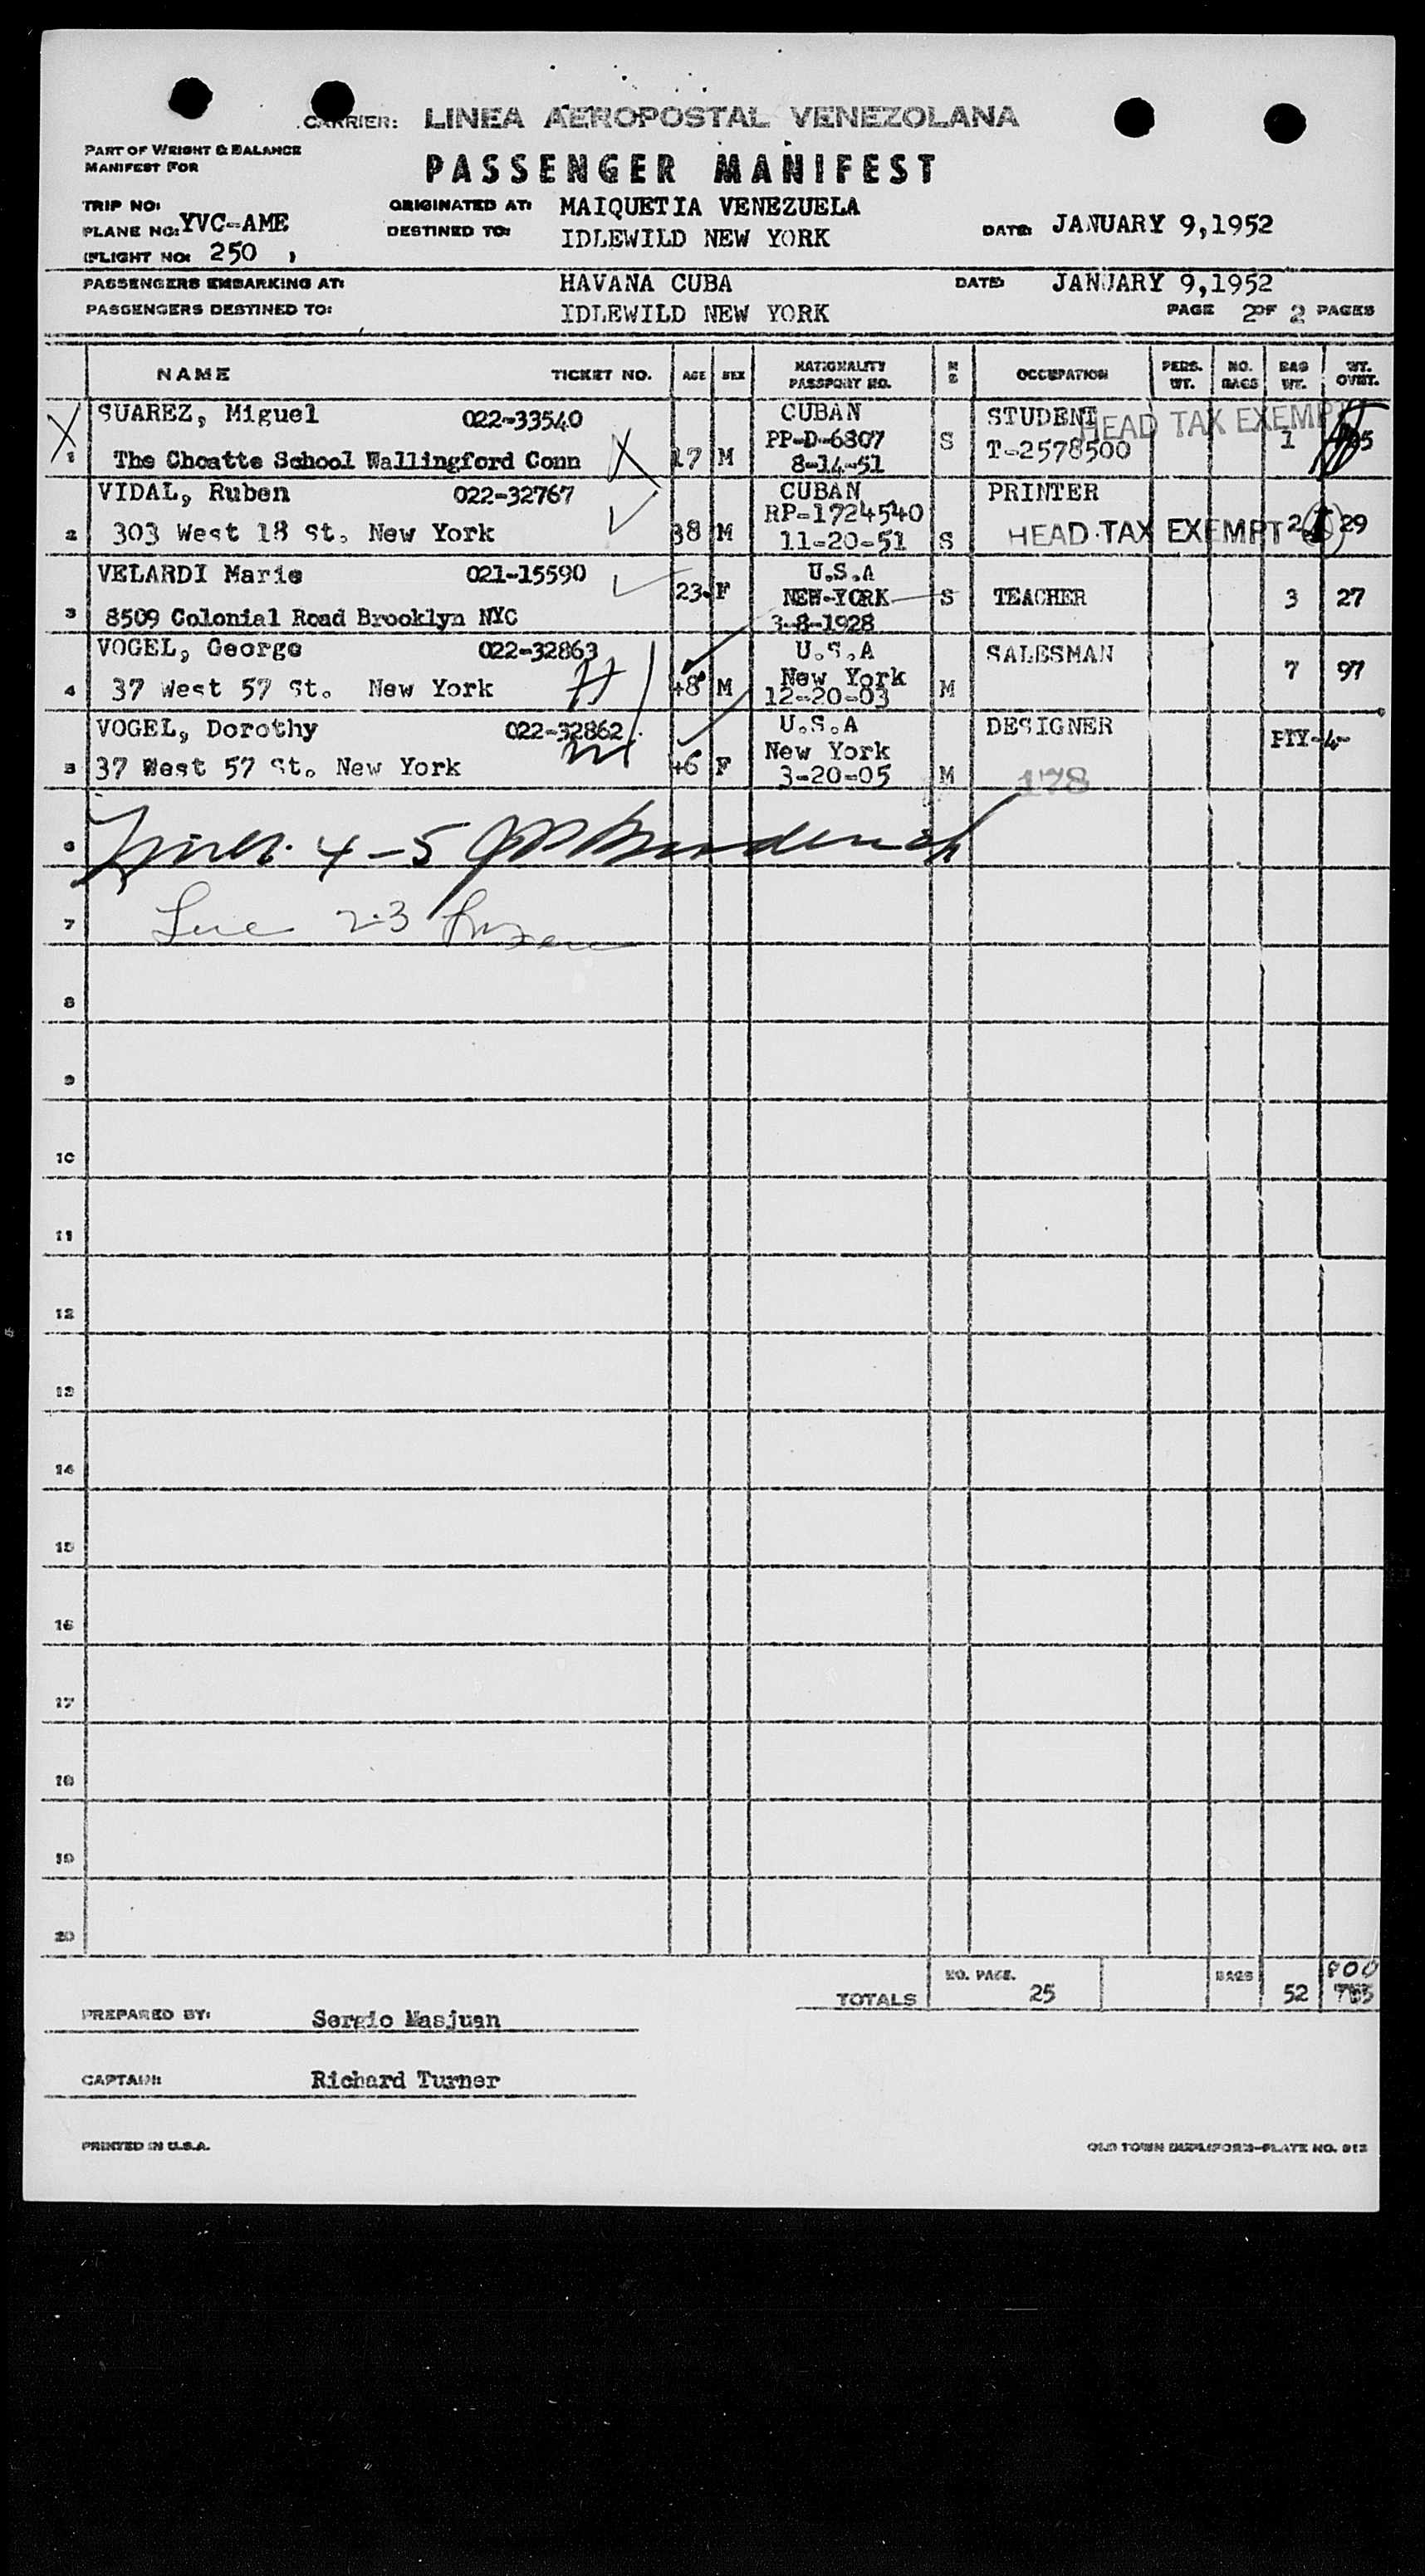 CARRIER: LINEA AEROPOSTAL VENEZOLANA
PART OF WEIGHT & BALANCE
MANIFEST FOR
PASSENGER MANIFEST
TRIP NO:
PLANE NO: YVC-AME
(FLIGHT NO: 250 )
ORIGINATED AT: MAIQUETIA VENEZUELA
DESTINED TO: IDLEWILD NEW YORK
DATE: JANUARY 9,1952
PASSENGERS EMBARKING AT: HAVANA CUBA DATE: JANUARY 9,1952
PASSENGERS DESTINED TO: IDLEWILD NEW YORK PAGE 2 OF 2 PAGES
NAME TICKET NO. AGE SEX NATIONALITY PASSPORT NO. M S OCCUPATION PERS. WT. NO. BAGS BAG WT. WT. OVWT.
SUAREZ, Miguel 022-33540 CUBAN STUDENT HEAD TAX EXEMPT
1 The Choatte School Wallingford Conn 17 M PP-D-6807 S T-2578500 1
8-14-51
VIDAL, Ruben 022-32767 CUBAN PRINTER
RP-1724540
2 303 West 18 St. New York 38 M 11-20-51 S HEAD TAX EXEMPT 2 29
VELARDI Marie 021-15590 U.S.A
23 F NEW-YORK S TEACHER 3 27
3 8509 Colonial Road Brooklyn NYC 3-8-1928
VOGEL, George 022-32863 U.S.A SALESMAN
4 37 West 57 St. New York 48 M New York M 7 97
12-20-03
VOGEL, Dorothy 022-32862 U.S.A DESIGNER
New York PTY-4-
5 37 West 57 St. New York 46 F 3-20-05 M 178
6 4-5
7 2-3
8
9
10
11
12
13
14
15
16
17
18
19
20
TOTALS NO. PASS. 25 BAGS 52 800
PREPARED BY: Sergio Masjuan
CAPTAIN: Richard Turner
PRINTED IN U.S.A.
OLD TOWN DUPLIFORM-PLATE NO. 912